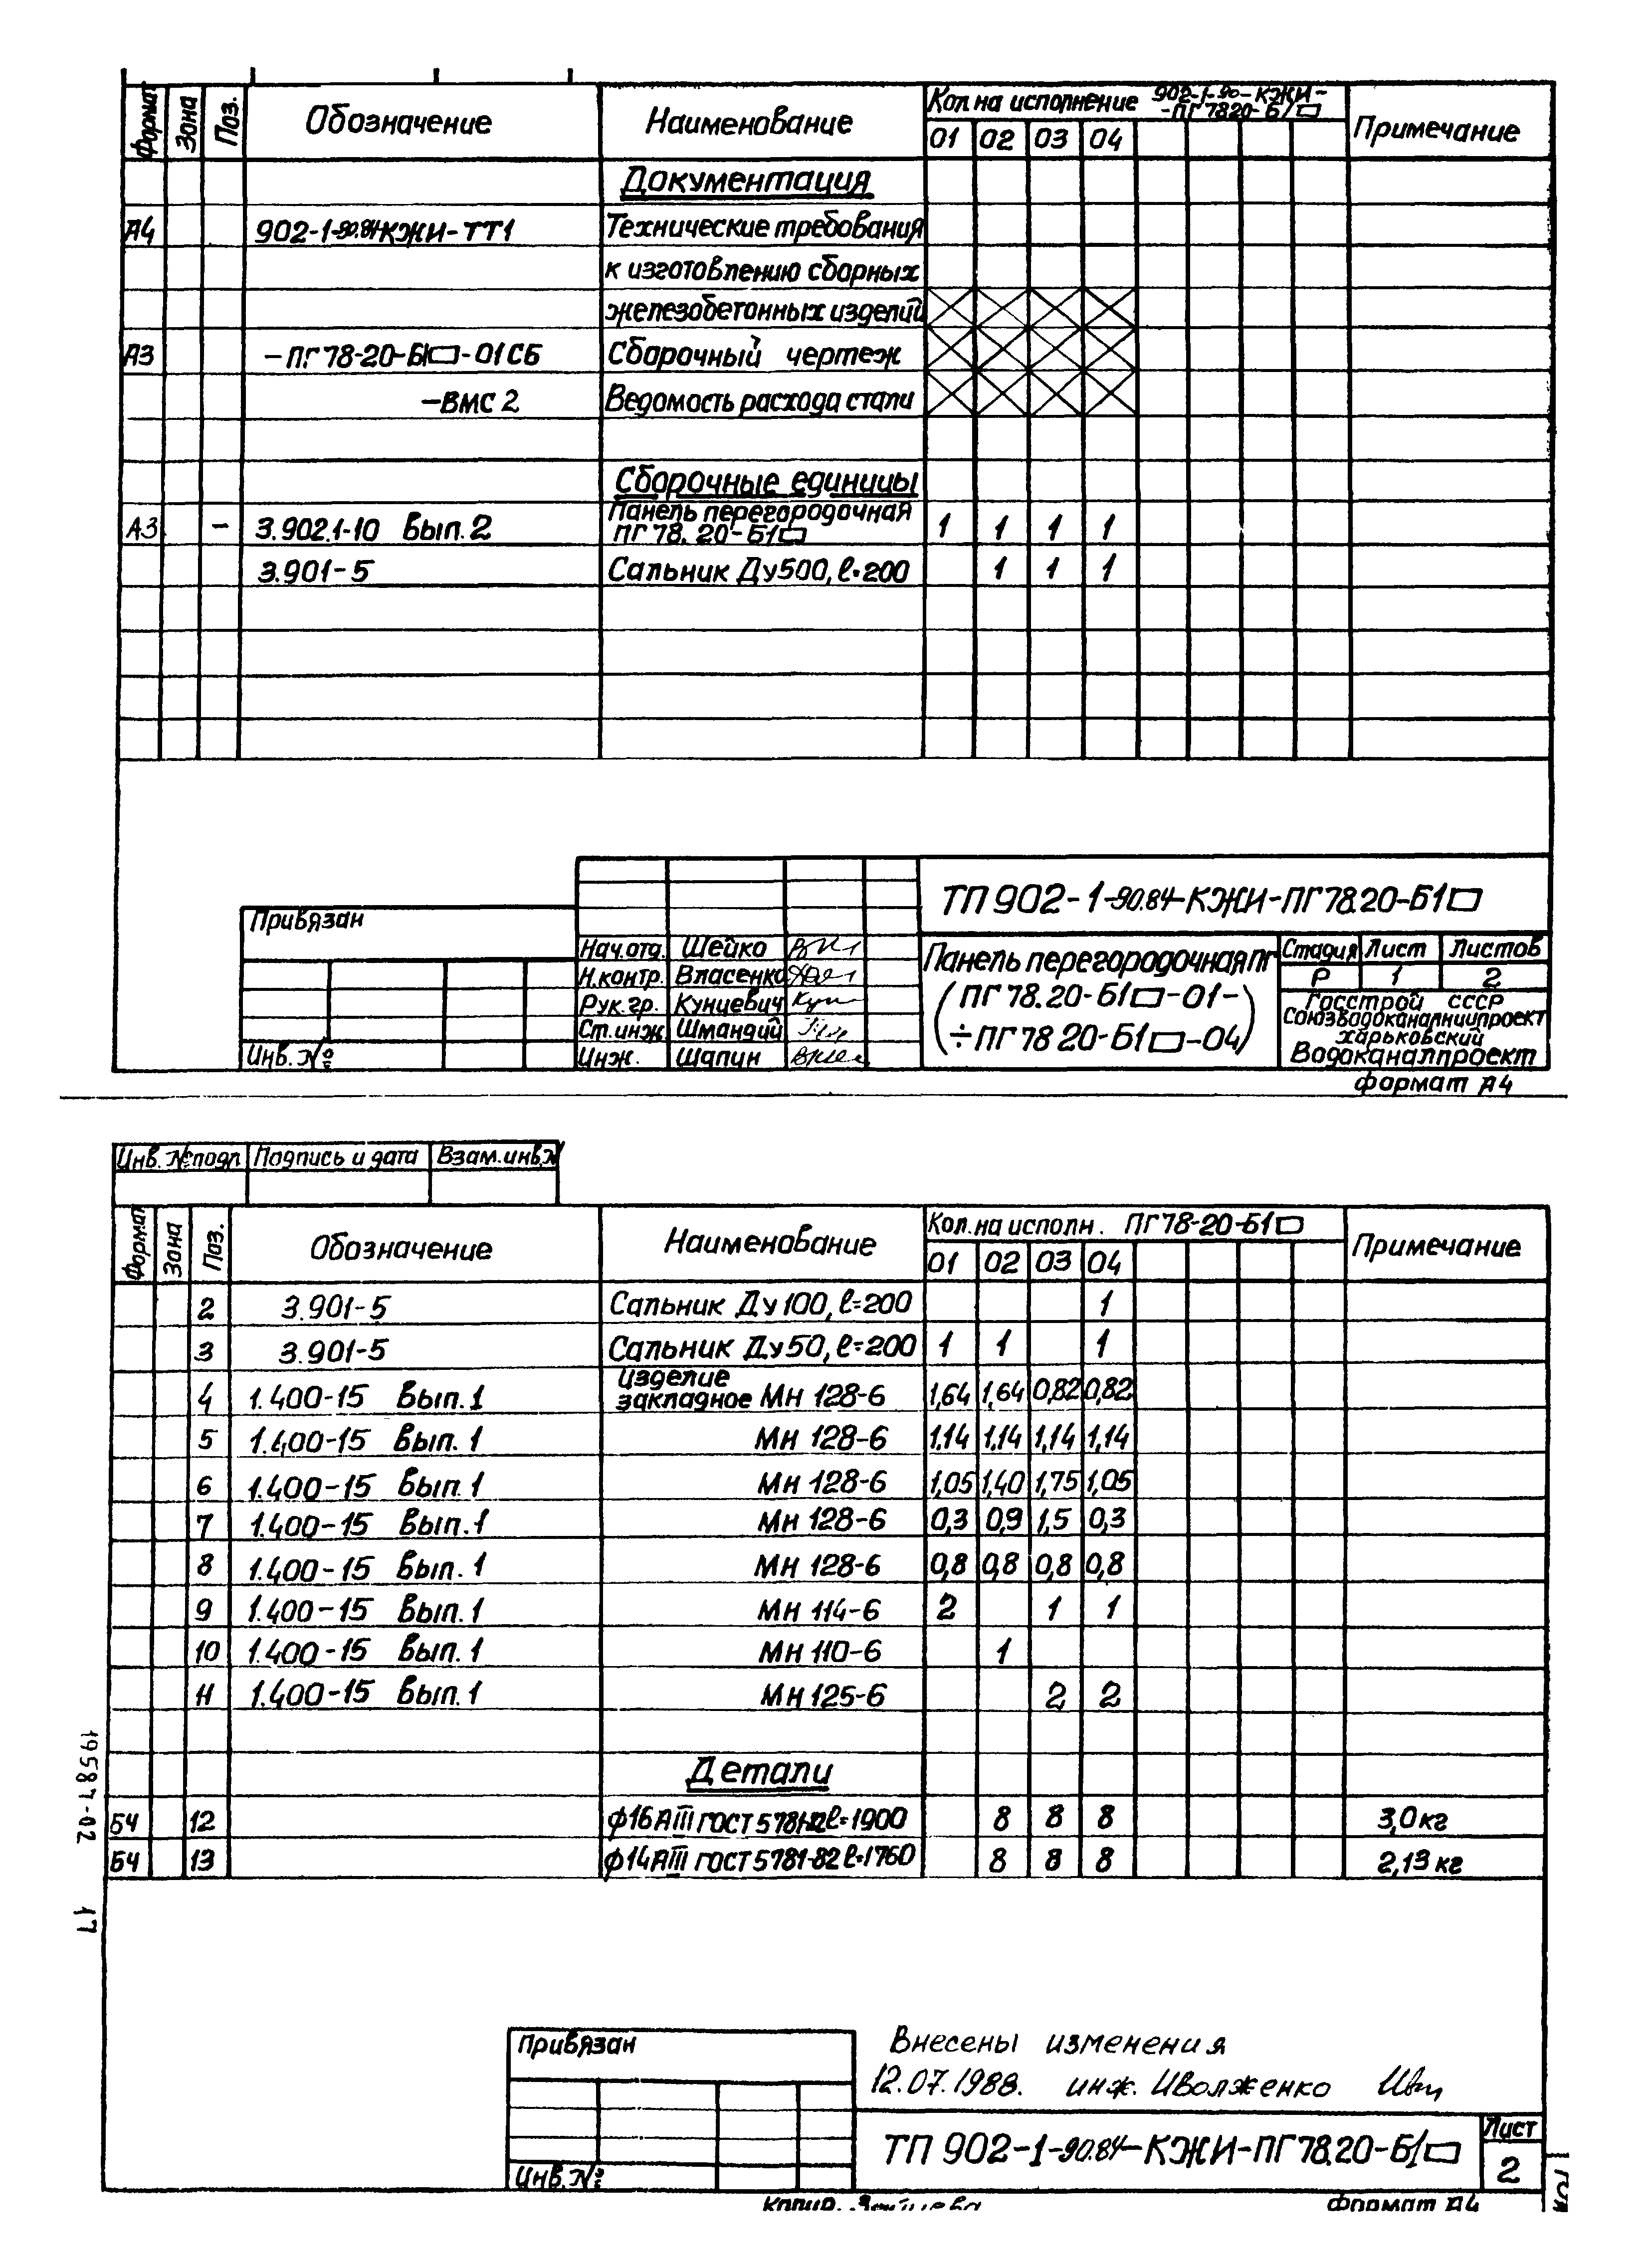 Формат Зона Поз. Обозначение Наименование Кол. на исполнение 902-1-90-КЖИ- Примечание
-ПГ7820-Б/□
01 02 03 04
Документация
А4 902-1-90.84КЖИ-ТТ1 Технические требования
к изготовлению сборных
железобетонных изделий
А3 -ПГ78-20-Б1□-01СБ Сборочный чертеж
-ВМС2 Ведомость расхода стали
Сборочные единицы
А3 - 3.902.1-10 Вып.2 Панель перегородочная ПГ78.20-Б1□ 1 1 1 1
3.901-5 Сальник Ду500, ℓ=200 1 1 1
Привязан
Инв.№
Нач.отд. Шейко
Н.контр. Власенко
Рук.гр. Кунцевич
Ст.инж Шмандий
Инж. Шапин
ТП902-1-90.84-КЖИ-ПГ78.20-Б1□
Панель перегородочная ПГ
(ПГ78.20-Б1□-01-
÷ПГ78 20-Б1□-04)
Стадия Лист Листов
Р 1 2
Госстрой СССР
Союзводоканалниипроект
харьковский
Водоканалпроект
формат А4
Инв.№подл Подпись и дата Взам.инв.№
Формат Зона Поз. Обозначение Наименование Кол.на исполн. ПГ78-20-Б1□ Примечание
01 02 03 04
2 3.901-5 Сальник Ду100, ℓ=200 1
3 3.901-5 Сальник Ду50, ℓ=200 1 1 1
4 1.400-15 Вып.1 изделие закладное Мн 128-6 1,64 1,64 0,82 0,82
5 1.400-15 Вып.1 Мн 128-6 1,14 1,14 1,14 1,14
6 1.400-15 Вып.1 Мн 128-6 1,05 1,40 1,75 1,05
7 1.400-15 Вып.1 Мн 128-6 0,3 0,9 1,5 0,3
8 1.400-15 Вып.1 Мн 128-6 0,8 0,8 0,8 0,8
9 1.400-15 Вып.1 Мн 114-6 2 1 1
10 1.400-15 Вып.1 Мн 110-6 1
11 1.400-15 Вып.1 Мн 125-6 2 2
Детали
БЧ 12 ф16АIII ГОСТ5781-82 ℓ=1900 8 8 8 3,0кг
БЧ 13 ф14АIII ГОСТ5781-82 ℓ=1760 8 8 8 2,13кг
19587-02 17
Привязан
Инв.№
Внесены изменения
12.07.1988. инж. Иволженко
ТП 902-1-90.84-КЖИ-ПГ78.20-Б1□
Лист
2
Копир.
Формат А4